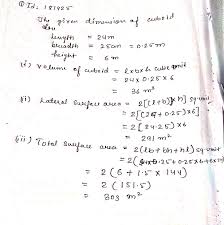 Q Id: 181925
The given dimension of cuboid
are
length = 24m
breadth = 25cm = 0.25m
height = 6m
(i) Volume of cuboid = l×b×h cube unit
= 24×0.25×6
= 36 m³
(ii) Lateral surface area = 2[(l+b)×h] sq unit
= 2[(24+0.25)×6]
= 2[(24.25)×6
= 291 m²
(iii) Total surface area = 2(lb+bh+hl) sq unit
= 2(24×0.25+0.25×6+6×24)
= 2(6+1.5×144)
= 2(151.5)
= 303 m²